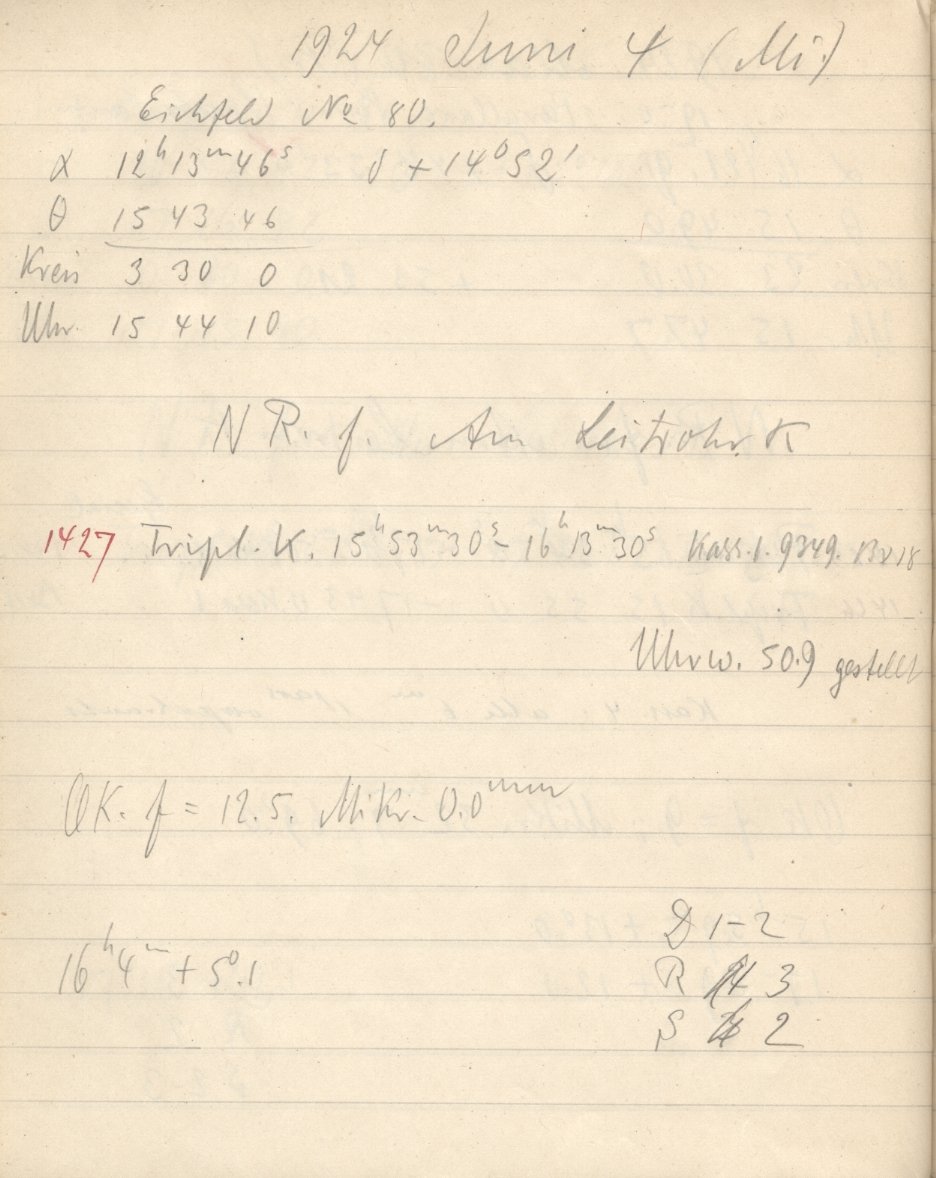 1924 Juni 4 (Mi.)
Eichfeld No 80.
α 12h 13m 46s δ + 14° 52'
θ 15 43 46
Kreis 3 30 0
Uhr. 15 44 10
N R. f. Am Leitrohr. K
1427 Tripl. K. 15h 53m 30s - 16h 13m 30s Kass. 1. 9349. Br 18
Uhrw. 50.9 gestellt
OK. f = 12.5. Mikr. 0.0mm
D 1-2
16h 4m + 5°.1
R 3
S 2